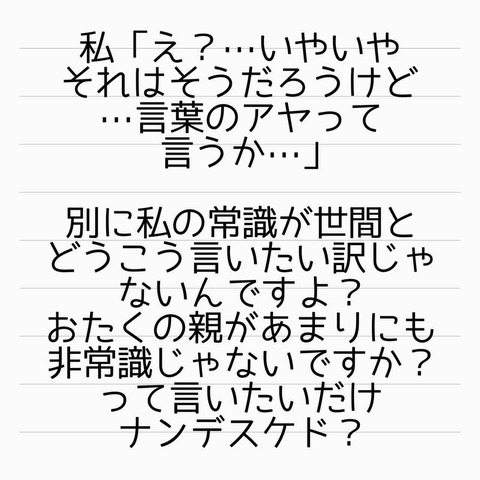 私「え？…いやいや
それはそうだろうけど
…言葉のアヤって
言うか…」
別に私の常識が世間と
どうこう言いたい訳じゃ
ないんですよ？
おたくの親があまりにも
非常識じゃないですか？
って言いたいだけ
ナンデスケド？